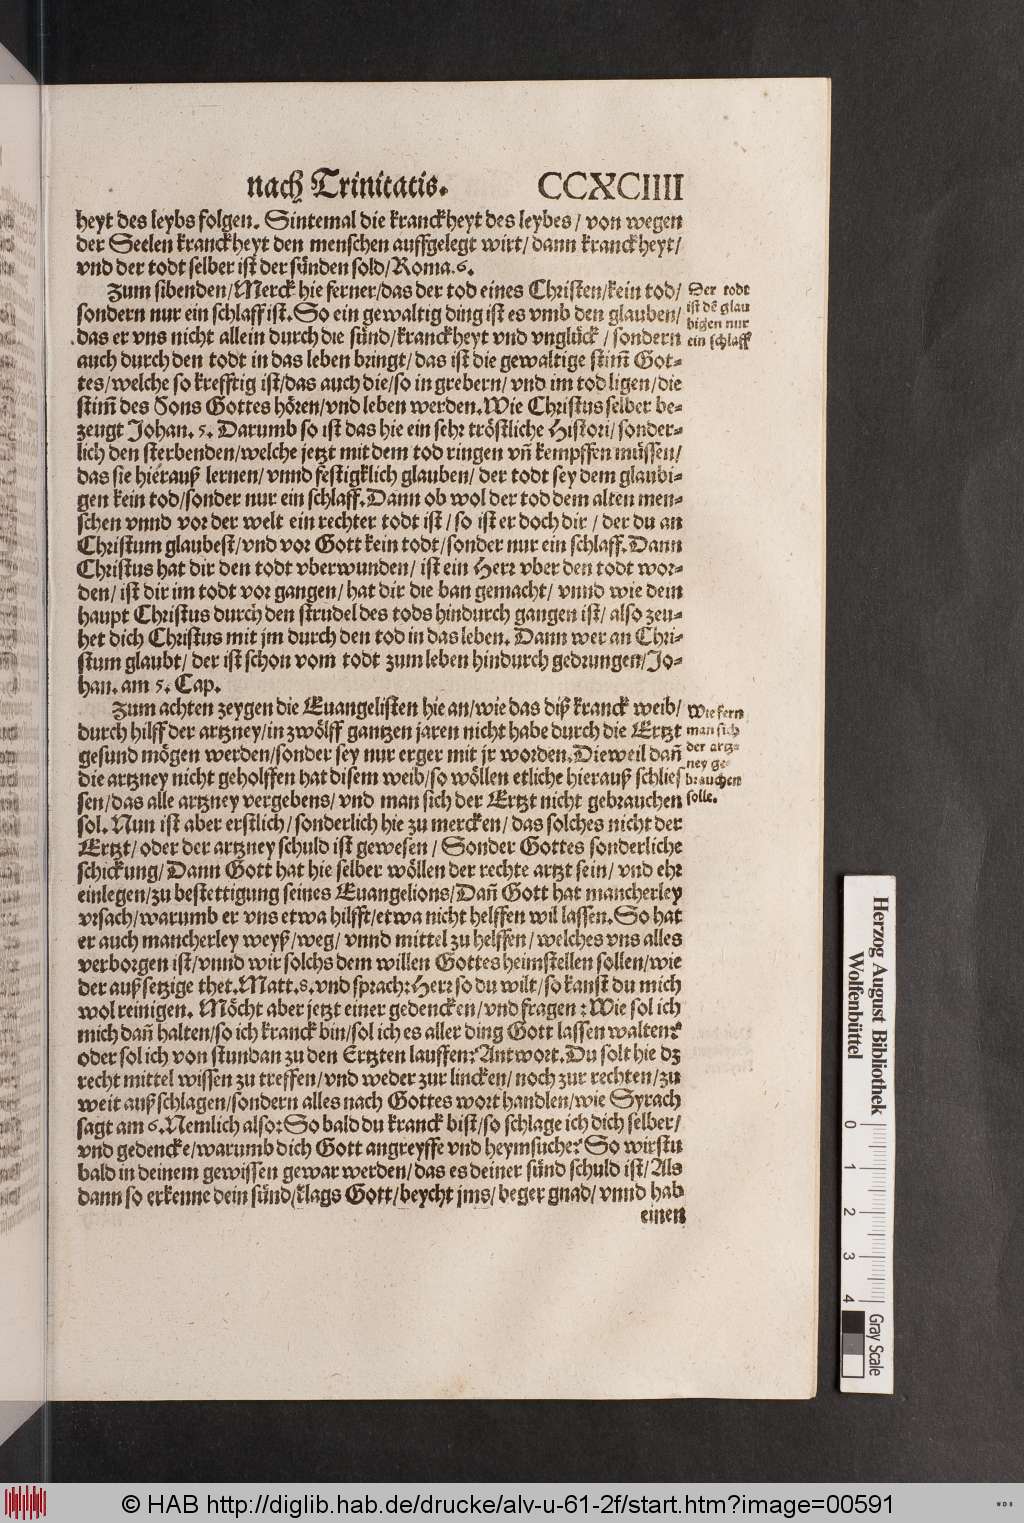 nach Trinitatis. CCXCIIII
heyt des leybs folgen. Sintemal die kranckheyt des leybes/ von wegen
der Seelen kranckheyt den menschen auffgelegt wirt/ dann kranckheyt/
vnd der todt selber ist der sünden sold/ Roma. 6.
Zum sibenden/ Merck hie ferner/ das der tod eines Christen/ kein tod/
sondern nur ein schlaff ist. So ein gewaltig ding ist es vmb den glauben/
das er vns nicht allein durch die sünd/ kranckheyt vnd vnglück/ sondern
auch durch den todt in das leben bringt/ das ist die gewaltige stim̃ Got-
tes/ welche so krefftig ist/ das auch die/ so in grebern/ vnd im tod ligen/ die
stim̃ des Sons Gottes hören/ vnd leben werden. Wie Christus selber be-
zeugt Johan. 5. Darumb so ist das hie ein sehr tröstliche Histori/ sonder-
lich den sterbenden/ welche jetzt mit dem tod ringen vñ kempffen müssen/
das sie hierauß lernen/ vnnd festigklich glauben/ der todt sey dem glaubi-
gen kein tod/ sonder nur ein schlaff. Dann ob wol der tod dem alten men-
schen vnnd vor der welt ein rechter todt ist/ so ist er doch dir/ der du an
Christum glaubest/ vnd vor Gott kein todt/ sonder nur ein schlaff. Dann
Christus hat dir den todt vberwunden/ ist ein Herr vber den todt wor-
den/ ist dir im todt vor gangen/ hat dir die ban gemacht/ vnnd wie dem
haupt Christus durch den strudel des tods hindurch gangen ist/ also zeu-
het dich Christus mit jm durch den tod in das leben. Dann wer an Chri-
stum glaubt/ der ist schon vom todt zum leben hindurch gedrungen/ Jo-
han. am 5. Cap.
Der todt
ist dẽ glau
bigen nur
ein schlaff
Zum achten zeygen die Euangelisten hie an/ wie das diß kranck weib/
durch hilff der artzney/ in zwölff gantzen jaren nicht habe durch die Ertzt
gesund mögen werden/ sonder sey nur erger mit jr worden. Dieweil dañ
die artzney nicht geholffen hat disem weib/ so wöllen etliche hierauß schlies
sen/ das alle artzney vergebens/ vnd man sich der Ertzt nicht gebrauchen
sol. Nun ist aber erstlich/ sonderlich hie zu mercken/ das solches nicht der
Ertzt/ oder der artzney schuld ist gewesen/ Sonder Gottes sonderliche
schickung/ Dann Gott hat hie selber wöllen der rechte artzt sein/ vnd ehr
einlegen/ zu bestettigung seines Euangelions/ Dañ Gott hat mancherley
vrsach/ warumb er vns etwa hilfft/ etwa nicht helffen wil lassen. So hat
er auch mancherley weyß/ weg/ vnnd mittel zu helffen/ welches vns alles
verborgen ist/ vnnd wir solchs dem willen Gottes heimstellen sollen/ wie
der außsetzige thet. Matt. 8. vnd sprach: Herr so du wilt/ so kanst du mich
wol reinigen. Möcht aber jetzt einer gedencken/ vnd fragen: Wie sol ich
mich dañ halten/ so ich kranck bin/ sol ich es aller ding Gott lassen walten?
oder sol ich von stundan zu den Ertzten lauffen? Antwort. Du solt hie dz
recht mittel wissen zu treffen/ vnd weder zur lincken/ noch zur rechten/ zu
weit außschlagen/ sondern alles nach Gottes wort handlen/ wie Syrach
sagt am 6. Nemlich also: So bald du kranck bist/ so schlage ich dich selber/
vnd gedencke/ warumb dich Gott angreyffe vnd heymsuche? So wirstu
bald in deinem gewissen gewar werden/ das es deiner sünd schuld ist/ Als
dann so erkenne dein sünd/ klags Gott/ beycht jms/ beger gnad/ vnnd hab
einen
Wie fern
man sich
der artz-
ney ge-
brauchen
solle.
Herzog August Bibliothek
Wolfenbüttel
0 1 2 3 4
Gray Scale
© HAB http://diglib.hab.de/drucke/alv-u-61-2f/start.htm?image=00591
WDB